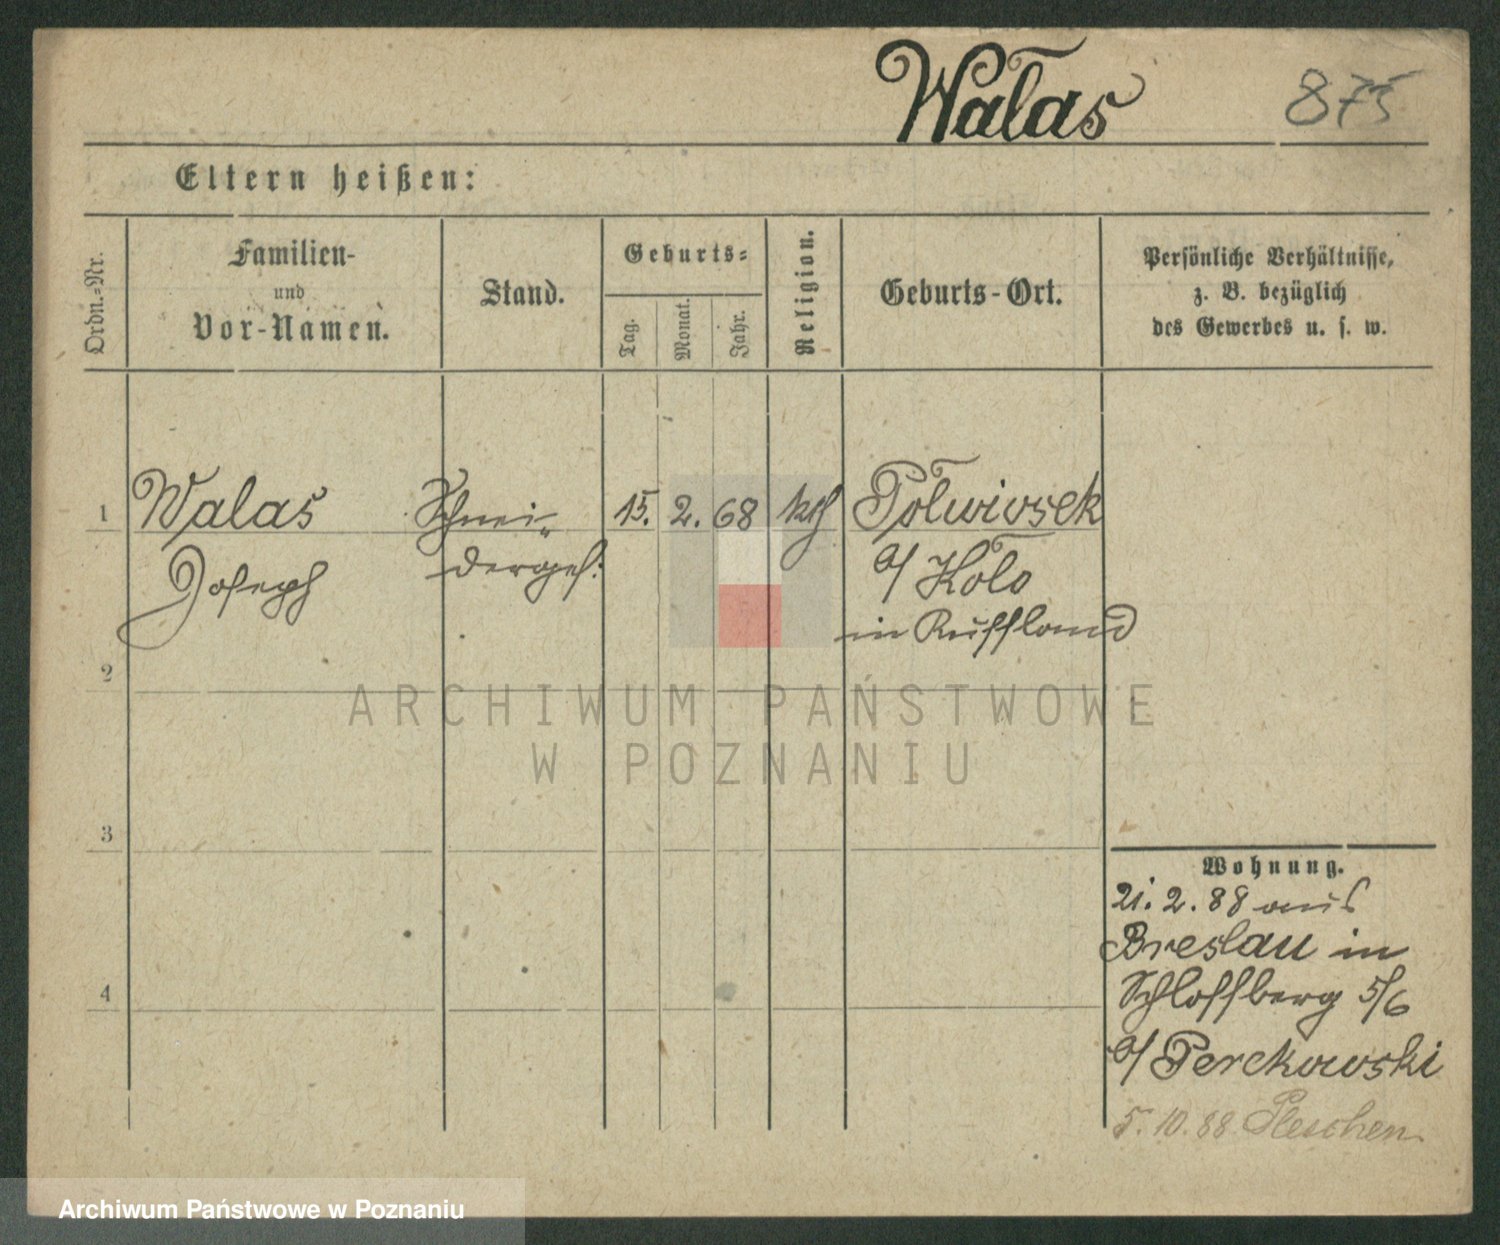 Walas 875
Eltern heißen:
Ordn.-Nr.
Familien-
und
Vor-Namen.
Stand.
Geburts-
Tag.
Monat.
Jahr.
Religion.
Geburts-Ort.
Persönliche Verhältnisse,
z. B. bezüglich
des Gewerbes u. s. w.
1 Walas Schnei- 15. 2. 68 kth Polwiosek
Joseph derges: a/ Kolo
in Russland
2
ARCHIWUM PAŃSTWOWE
W POZNANIU
3
Wohnung.
21. 2. 88 aus
Breslau in
4 Schlossberg 5/6
a/ Perekowski
5. 10. 88 Pleschen
Archiwum Państwowe w Poznaniu